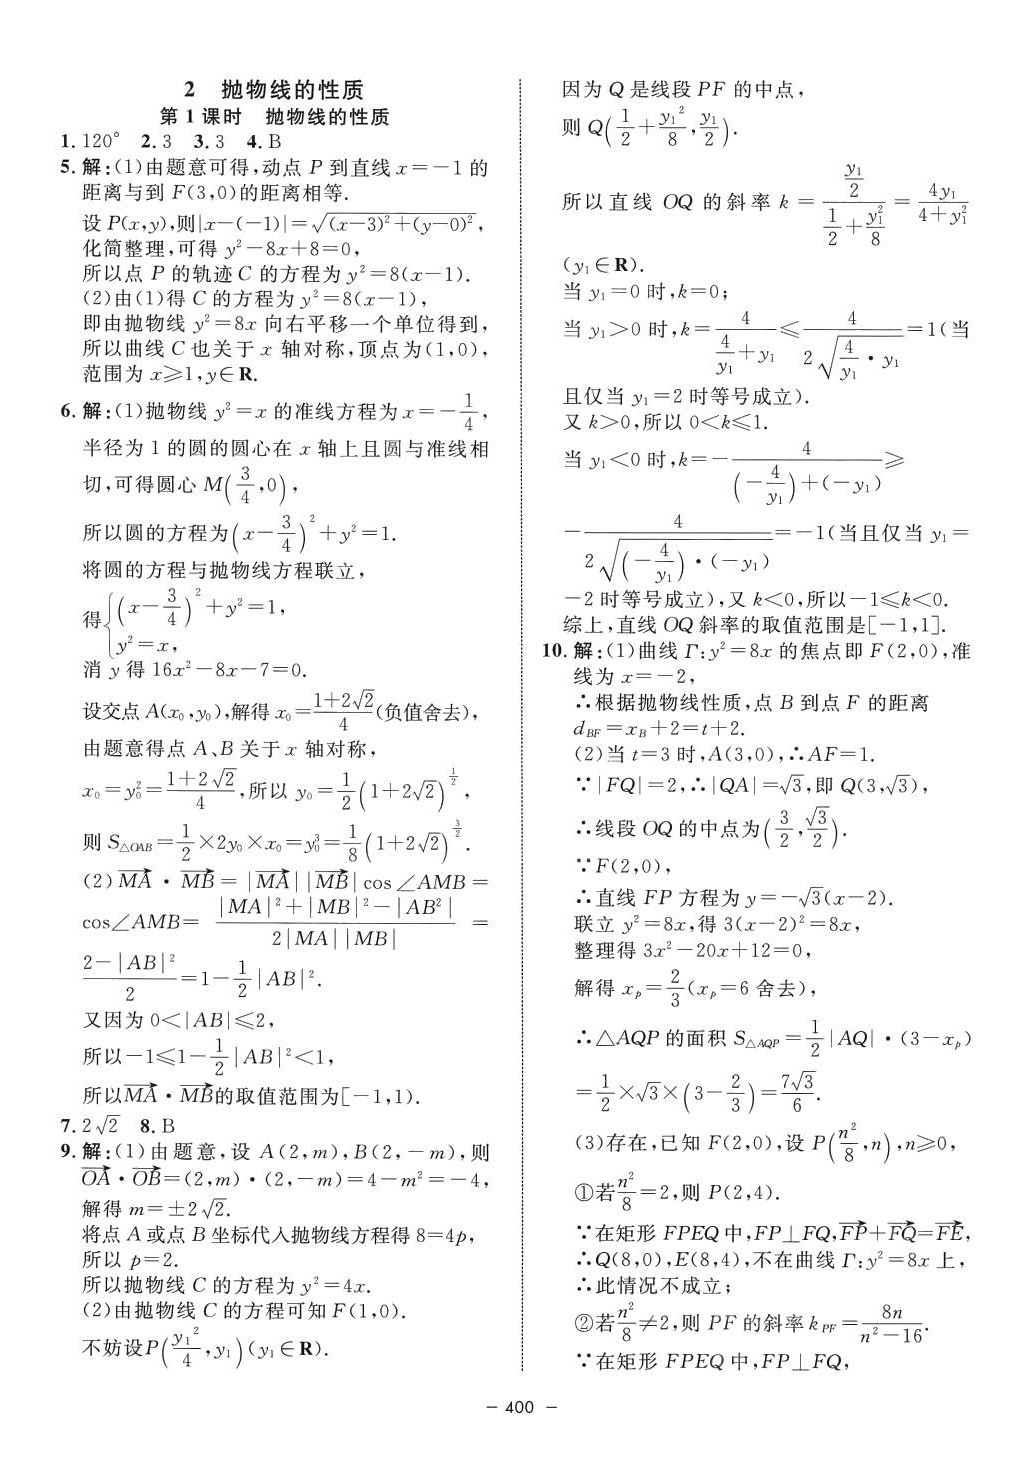 2 抛物线的性质
第 1 课时 抛物线的性质
1. 120° 2. 3 3. 3 4. B
5. 解:(1)由题意可得,动点 P 到直线 x=-1 的
距离与到 F(3,0)的距离相等.
设 P(x,y),则|x-(-1)|=√((x-3)²+(y-0)²),
化简整理,可得 y²-8x+8=0,
所以点 P 的轨迹 C 的方程为 y²=8(x-1).
(2)由(1)得 C 的方程为 y²=8(x-1),
即由抛物线 y²=8x 向右平移一个单位得到,
所以曲线 C 也关于 x 轴对称,顶点为(1,0),
范围为 x≥1,y∈R.
6. 解:(1)抛物线 y²=x 的准线方程为 x=-1/4,
半径为 1 的圆的圆心在 x 轴上且圆与准线相
切,可得圆心 M(3/4,0),
所以圆的方程为(x-3/4)²+y²=1.
将圆的方程与抛物线方程联立,
得{(x-3/4)²+y²=1,
y²=x,
消 y 得 16x²-8x-7=0.
设交点 A(x₀,y₀),解得 x₀=(1+2√2)/4(负值舍去),
由题意得点 A、B 关于 x 轴对称,
x₀=y₀²=(1+2√2)/4,所以 y₀=1/2(1+2√2)^(1/2),
则 S△OAB=1/2×2y₀×x₀=y₀³=1/8(1+2√2)^(3/2).
(2)MA→·MB→=|MA→||MB→|cos∠AMB=
cos∠AMB=(|MA|²+|MB|²-|AB²|)/(2|MA||MB|)=
(2-|AB|²)/2=1-1/2|AB|².
又因为 0<|AB|≤2,
所以-1≤1-1/2|AB|²<1,
所以MA→·MB→的取值范围为[-1,1).
7. 2√2 8. B
9. 解:(1)由题意,设 A(2,m),B(2,-m),则
OA→·OB→=(2,m)·(2,-m)=4-m²=-4,
解得 m=±2√2.
将点 A 或点 B 坐标代入抛物线方程得 8=4p,
所以 p=2.
所以抛物线 C 的方程为 y²=4x.
(2)由抛物线 C 的方程可知 F(1,0).
不妨设P(y₁²/4,y₁)(y₁∈R).
因为 Q 是线段 PF 的中点,
则 Q(1/2+y₁²/8,y₁/2).
所以直线 OQ 的斜率 k=(y₁/2)/(1/2+y₁²/8)=4y₁/(4+y₁²)
(y₁∈R).
当 y₁=0 时,k=0;
当 y₁>0 时,k=4/(4/y₁+y₁)≤4/(2√(4/y₁·y₁))=1(当
且仅当 y₁=2 时等号成立).
又 k>0,所以 0<k≤1.
当 y₁<0 时,k=-4/((-4/y₁)+(-y₁))≥
-4/(2√((-4/y₁)·(-y₁)))=-1(当且仅当 y₁=
-2 时等号成立),又 k<0,所以-1≤k<0.
综上,直线 OQ 斜率的取值范围是[-1,1].
10. 解:(1)曲线 Γ:y²=8x 的焦点即 F(2,0),准
线为 x=-2,
∴根据抛物线性质,点 B 到点 F 的距离
d_BF=x_B+2=t+2.
(2)当 t=3 时,A(3,0),∴AF=1.
∵|FQ|=2,∴|QA|=√3,即 Q(3,√3),
∴线段 OQ 的中点为(3/2,√3/2).
∵F(2,0),
∴直线 FP 方程为 y=-√3(x-2).
联立 y²=8x,得 3(x-2)²=8x,
整理得 3x²-20x+12=0,
解得 x_p=2/3(x_p=6 舍去),
∴△AQP 的面积 S△AQP=1/2|AQ|·(3-x_p)
=1/2×√3×(3-2/3)=7√3/6.
(3)存在,已知 F(2,0),设 P(n²/8,n),n≥0,
①若n²/8=2,则 P(2,4).
∵在矩形 FPEQ 中,FP⊥FQ,FP→+FQ→=FE→,
∴Q(8,0),E(8,4),不在曲线 Γ:y²=8x 上,
∴此情况不成立;
②若n²/8≠2,则 PF 的斜率 k_PF=8n/(n²-16).
∵在矩形 FPEQ 中,FP⊥FQ,
- 400 -